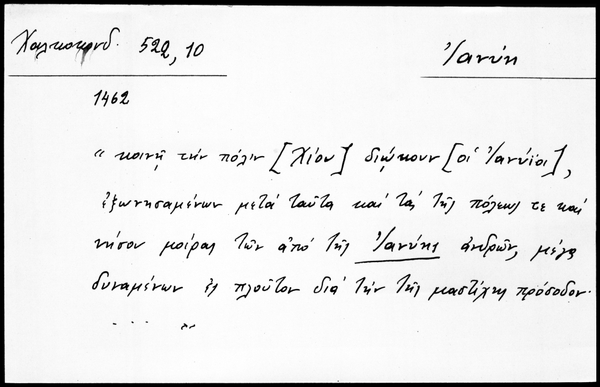 Χαλκοκονδ. 522, 10
Ἰανύη
1462
" κοινῇ τὴν πόλιν [Χίου] διῴκουν [οἱ Ἰανύϊοι],
ἐξωνησαμένων μετὰ ταῦτα καὶ τὰς τῆς πόλεώς τε καὶ
νήσου μοίρας τῶν ἀπὸ τῆς Ἰανύης ἀνδρῶν, μέγα
δυναμένων ἐς πλοῦτον διὰ τὴν τῆς μαστίχης πρόσοδον.
. . . . "